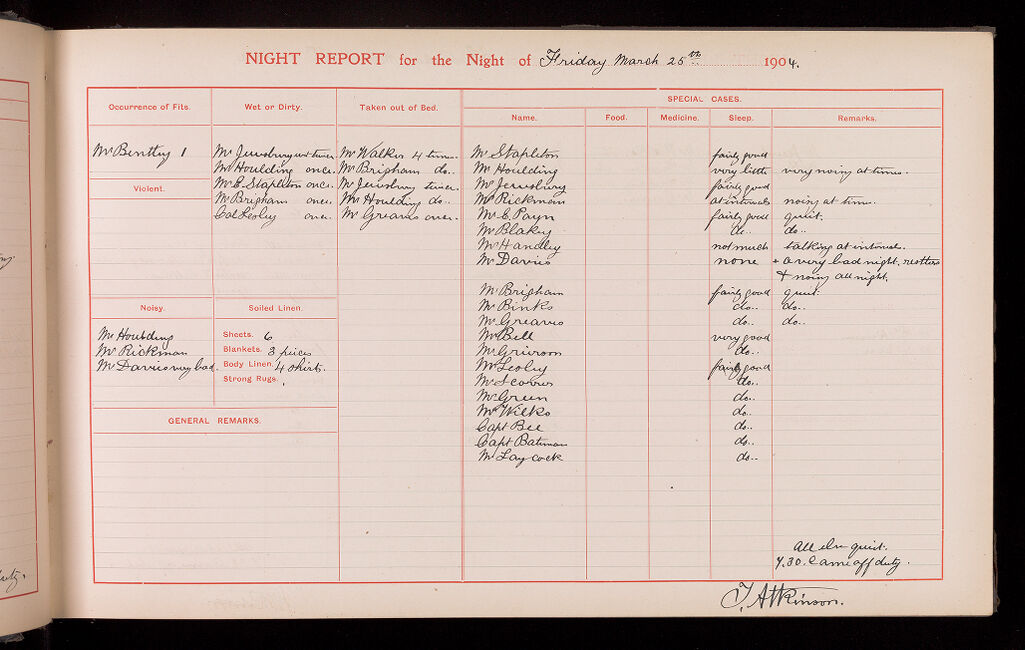 NIGHT REPORT for the Night of Friday March 25th 1904.
Occurrence of Fits.
Mr Bentley 1
Violent.
Noisy.
Mr Houlding
Mr Rickman
Mr Davies very bad.
Wet or Dirty.
Mr Jewsbury wet twice
Mr Houlding once.
Mr E. Stapleton once.
Mr Brigham once.
Col Lesley once.
Soiled Linen.
Sheets. 6
Blankets. 3 pieces
Body Linen. 4 shirts.
Strong Rugs.
GENERAL REMARKS.
Taken out of Bed.
Mr Walker 4 times.
Mr Brigham do..
Mr Jewsbury twice.
Mr Houlding do..
Mr Greaves once.
SPECIAL CASES.
Name. Food. Medicine. Sleep. Remarks.
Mr Stapleton fairly good
Mr Houlding very little very noisy at times.
Mr Jewsbury fairly good
Mr Rickman at intervals noisy at time.
Mr C Payn fairly good quiet.
Mr Blakey do.. do..
Mr Handley not much talking at intervals.
Mr Davies none + a very bad night. restless
+ noisy all night.
Mr Brigham fairly good quiet.
Mr Binks do.. do..
Mr Greaves do.. do..
Mr Bell very good
Mr Grierson do..
Mr Lesley fairly good
Mr do..
Mr Green do..
Mr Wilks do..
Capt Bee do..
Capt Bateman do..
Mr Laycock do..
All else quiet.
7.30. Came off duty.
T. Atkinson.